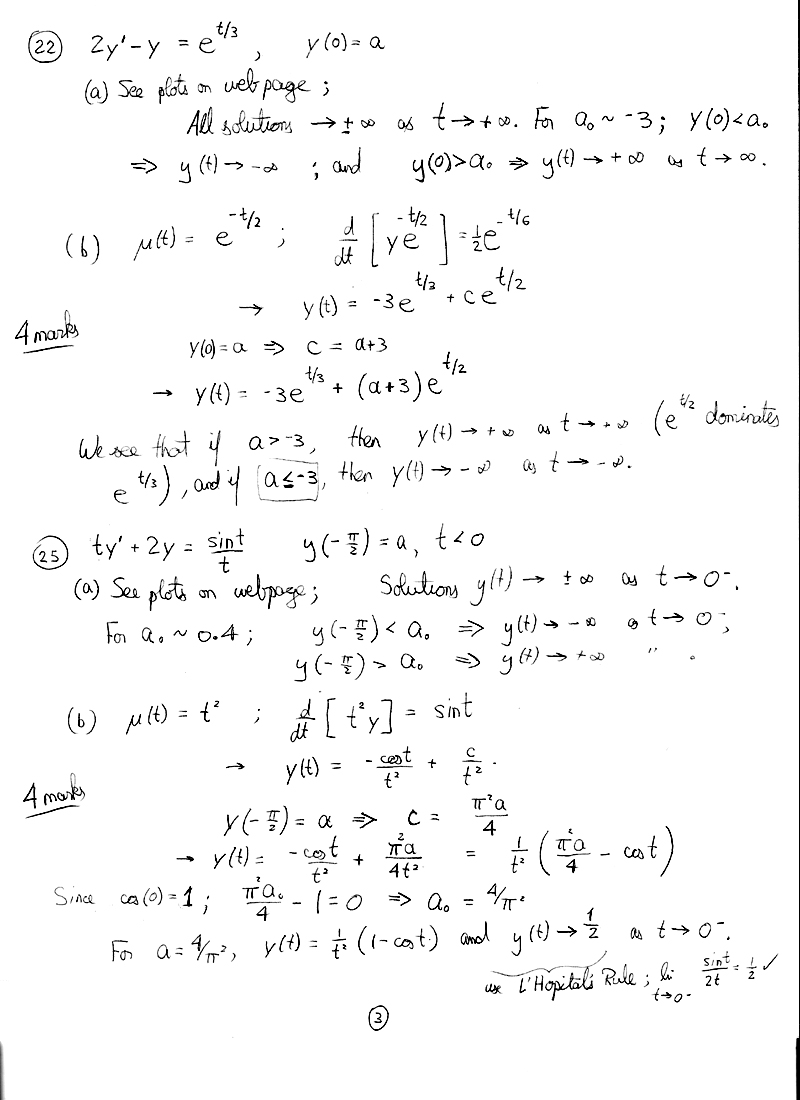 (22) 2y' - y = e^{t/3}, y(0) = a
(a) See plots on webpage;
All solutions → ±∞ as t → +∞. For a₀ ~ -3; y(0) < a₀
⇒ y(t) → -∞ ; and y(0) > a₀ ⇒ y(t) → +∞ as t → ∞.
(b) μ(t) = e^{-t/2} ; d/dt [y e^{-t/2}] = ½e^{-t/6}
→ y(t) = -3e^{t/3} + ce^{t/2}
4 marks
y(0) = a ⇒ c = a+3
→ y(t) = -3e^{t/3} + (a+3)e^{t/2}
We see that if a > -3, then y(t) → +∞ as t → +∞ (e^{t/2} dominates
e^{t/3}), and if a ≤ -3, then y(t) → -∞ as t → -∞.
(25) ty' + 2y = sint/t y(-π/2) = a, t < 0
(a) See plots on webpage; Solutions y(t) → ±∞ as t → 0⁻.
For a₀ ~ 0.4 ; y(-π/2) < a₀ ⇒ y(t) → -∞ as t → 0⁻;
y(-π/2) > a₀ ⇒ y(t) → +∞ " .
(b) μ(t) = t² ; d/dt [t²y] = sint
→ y(t) = -cost/t² + c/t² .
4 marks
y(-π/2) = a ⇒ c = π²a/4
→ y(t) = -cost/t² + π²a/4t² = 1/t² (π²a/4 - cost)
Since cos(0) = 1 ; π²a₀/4 - 1 = 0 ⇒ a₀ = 4/π²
For a = 4/π², y(t) = 1/t² (1-cost) and y(t) → 1/2 as t → 0⁻.
use L'Hopital's Rule ; li t→0⁻ sint/2t = 1/2 ✓
(3)